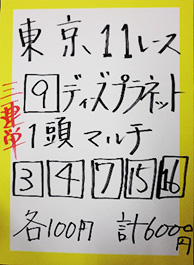 東京、11レース
三連単
9 ディズプラネット
1頭マルチ
3 4 7 15 16
各100円 計6000円